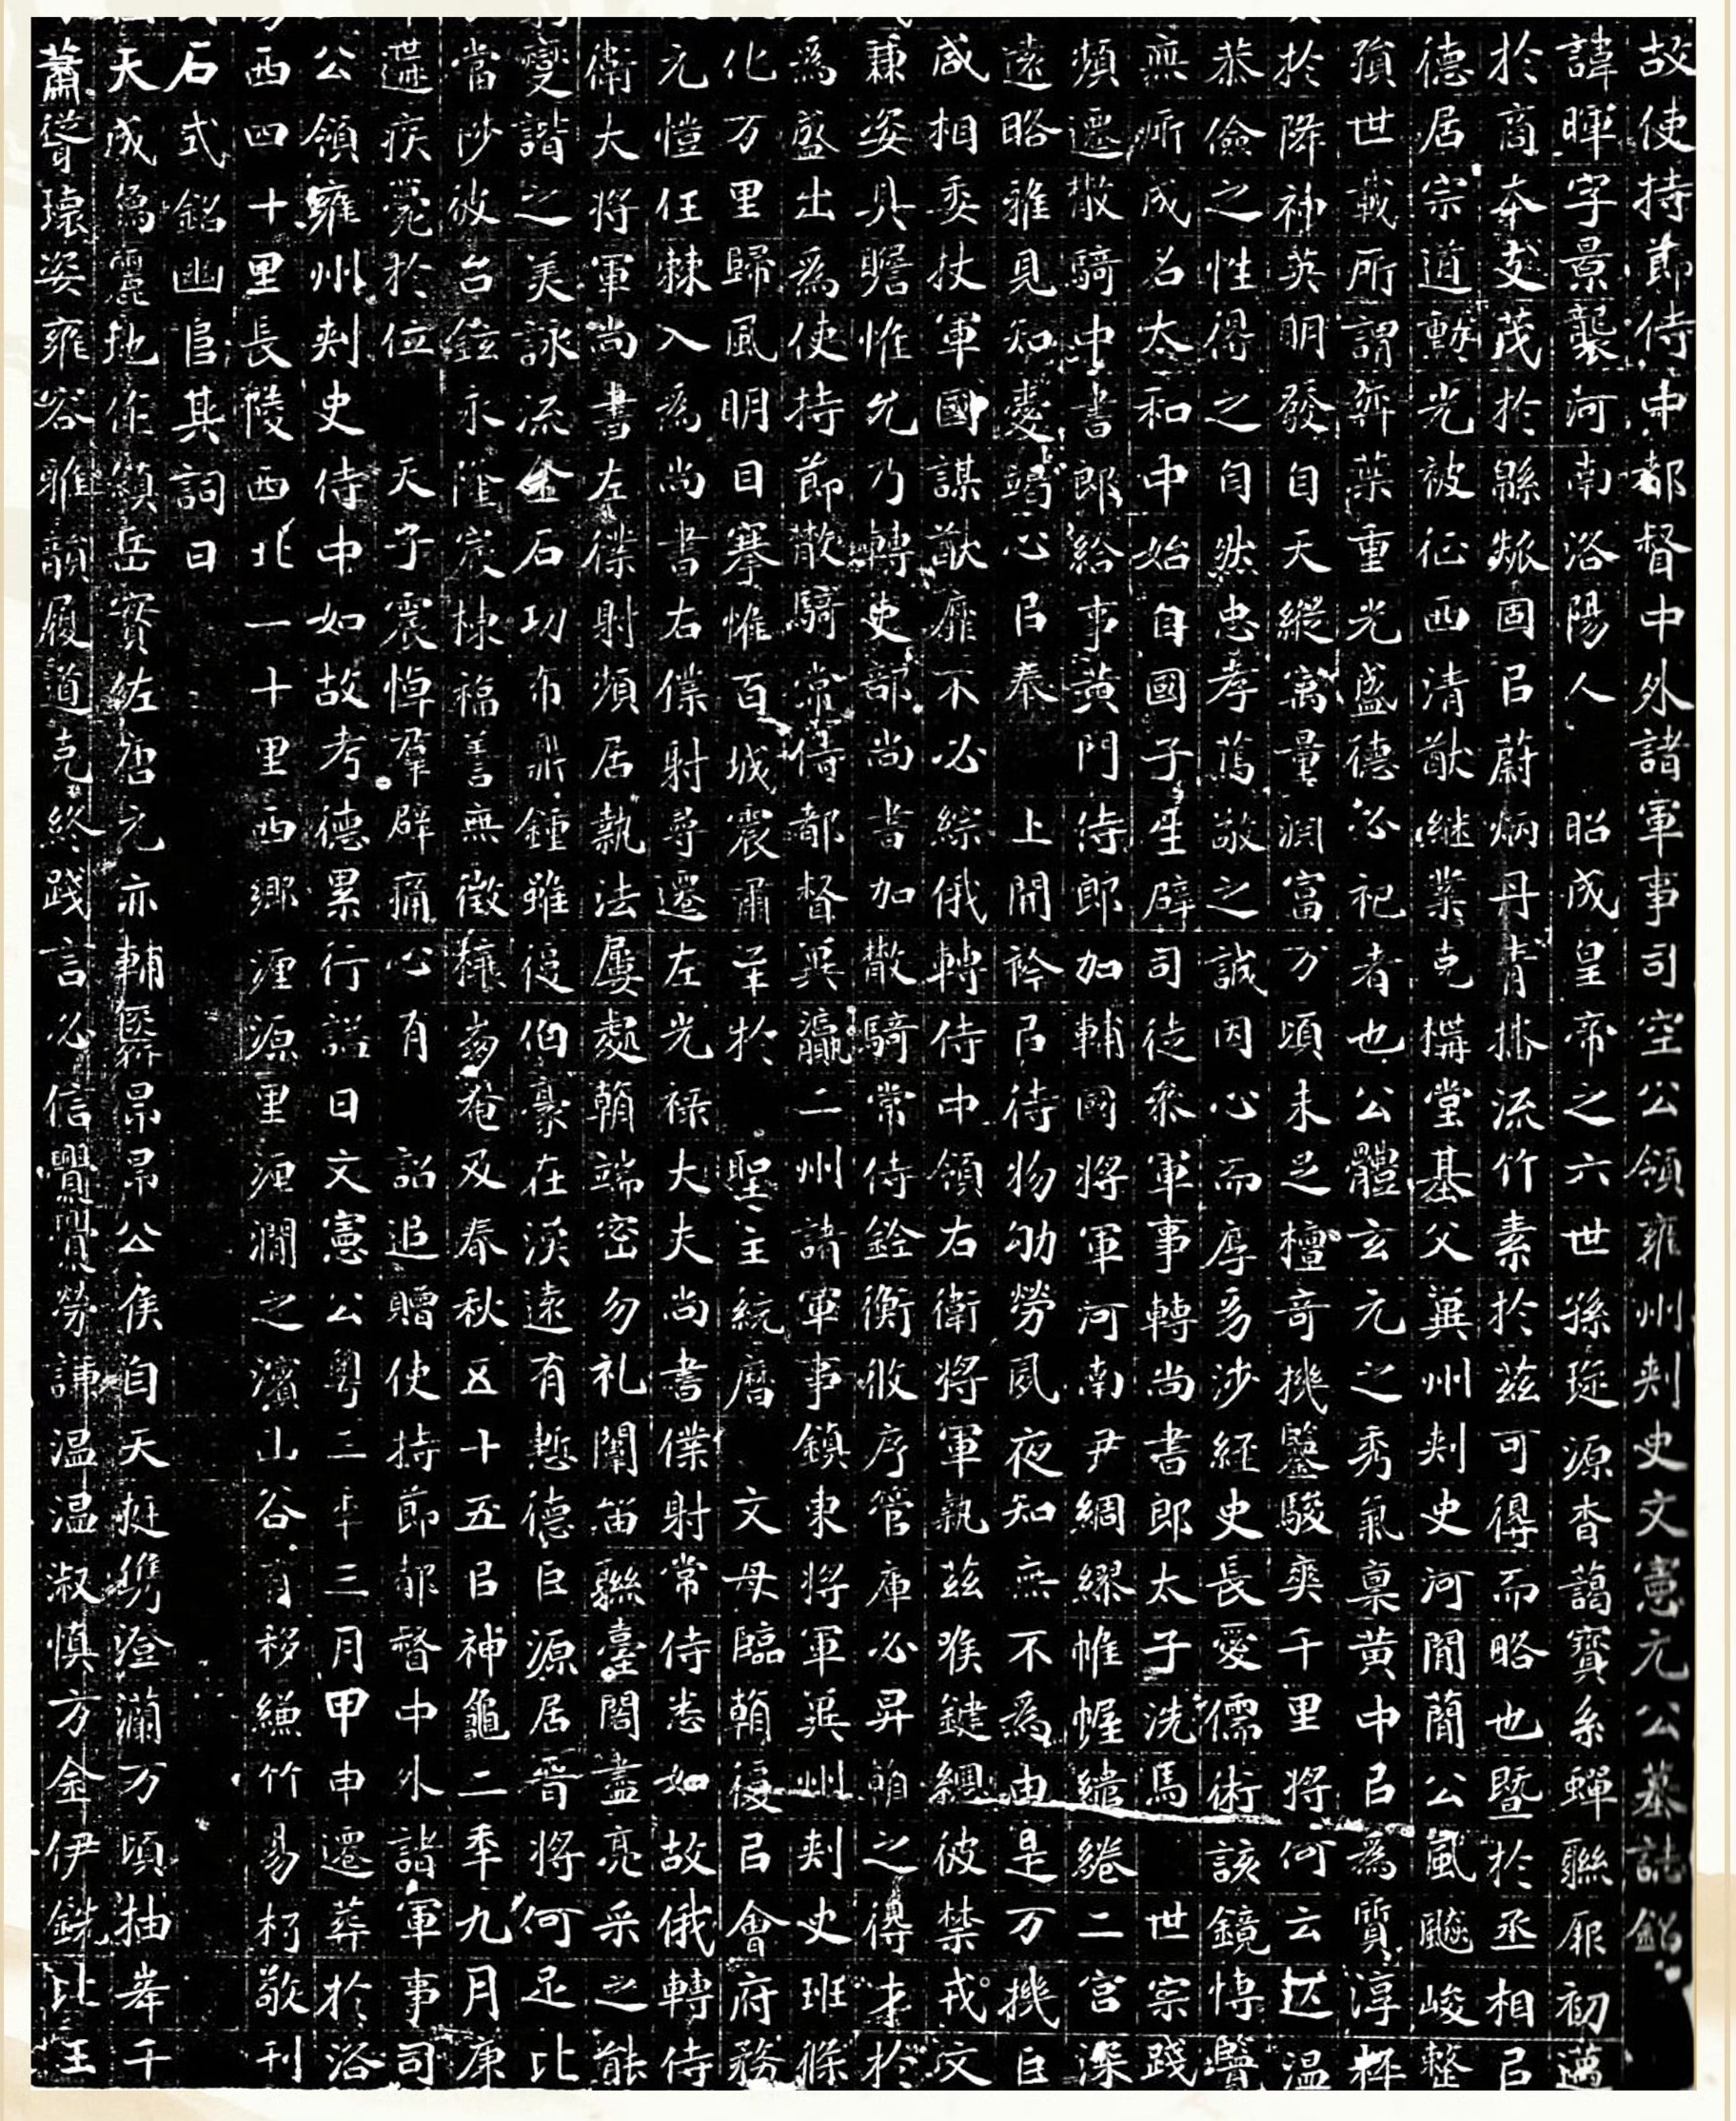 故使持節侍中都督中外諸軍事司空公領雍州刺史文憲元公墓誌銘
諱暉字景襲河南洛陽人昭成皇帝之六世孫琁源杳藹寶系蟬聯厥初邁
於商夲支茂於緜瓞固㠯蔚炳丹青播流竹素於茲可得而略也曁於丞相㠯
德居宗道勳光被征西清猷継業克構堂基父兾州刺史河間簡公風飈峻整
殞世載所謂弈葉重光盛德必祀者也公體玄元之秀氣稟黃中㠯為質淳粹
於降神英明發自天縱㝢量淵富万頃未足擅奇機鑒駿爽千里將何云匹温
恭儉之性得之自然忠孝萬敬之誠因心而厚多涉経史長愛儒術該鏡博覽
無所成名太和中始自國子生辟司徒叅軍事轉尚書郎太子洗馬世宗踐
頻遷散騎中書郎給事黃門侍郎加輔國將軍河南尹綢繆帷幄繾綣二宮深
遠略雅見知愛竭心㠯奉上開衿㠯待物劬勞夙夜知無不為由是万機巨
咸相委杖軍國謀猷靡不必綜俄轉侍中領右衛將軍執茲喉鍵總彼禁戎文
兼姿具瞻惟允乃轉吏部尚書加散騎常侍銓衡攸序管庫必昇䪺之得才於
為盛出為使持節散騎常侍都督兾瀛二州諸軍事鎮東將軍兾州刺史班條
化万里歸風明目搴帷百城震肅羊於聖主統曆文母臨朝復㠯會府務
元愷任棘入為尚書右僕射尋遷左光禄大夫尚書僕射常侍悉如故俄轉侍
衛大將軍尚書左僕射頻居執法屢處朝端密勿礼闈畄聯臺閣盡亮采之能
變諧之美詠流金石功布鼎鍾雖復伯豪在漢遠有慙德巨源居晋將何足比
當陟彼台鉉永隆宸棟福善無徵穰蒭奄及春秋五十五㠯神龜二秊九月庚
遘疾薨於位天子震悼羣辟痛心有詔追贈使持節都督中外諸軍事司
公領雍州刺史侍中如故考德累行諡曰文憲公粤三年三月甲申遷葬於洛
西四十里長陵西北一十里西鄉瀍源里瀍澗之濱山谷有移縑竹易朽敬刊
石式銘幽㠯其詞曰
天成為靈地作鎮岳實佐唐元亦輔医昴昴公侯自天挺雋澄瀾万頃抽峯千
蕭聳瓌姿雍容雅韻履道克終踐言必信亹亹勞謙温温淑慎方金伊銑比玉